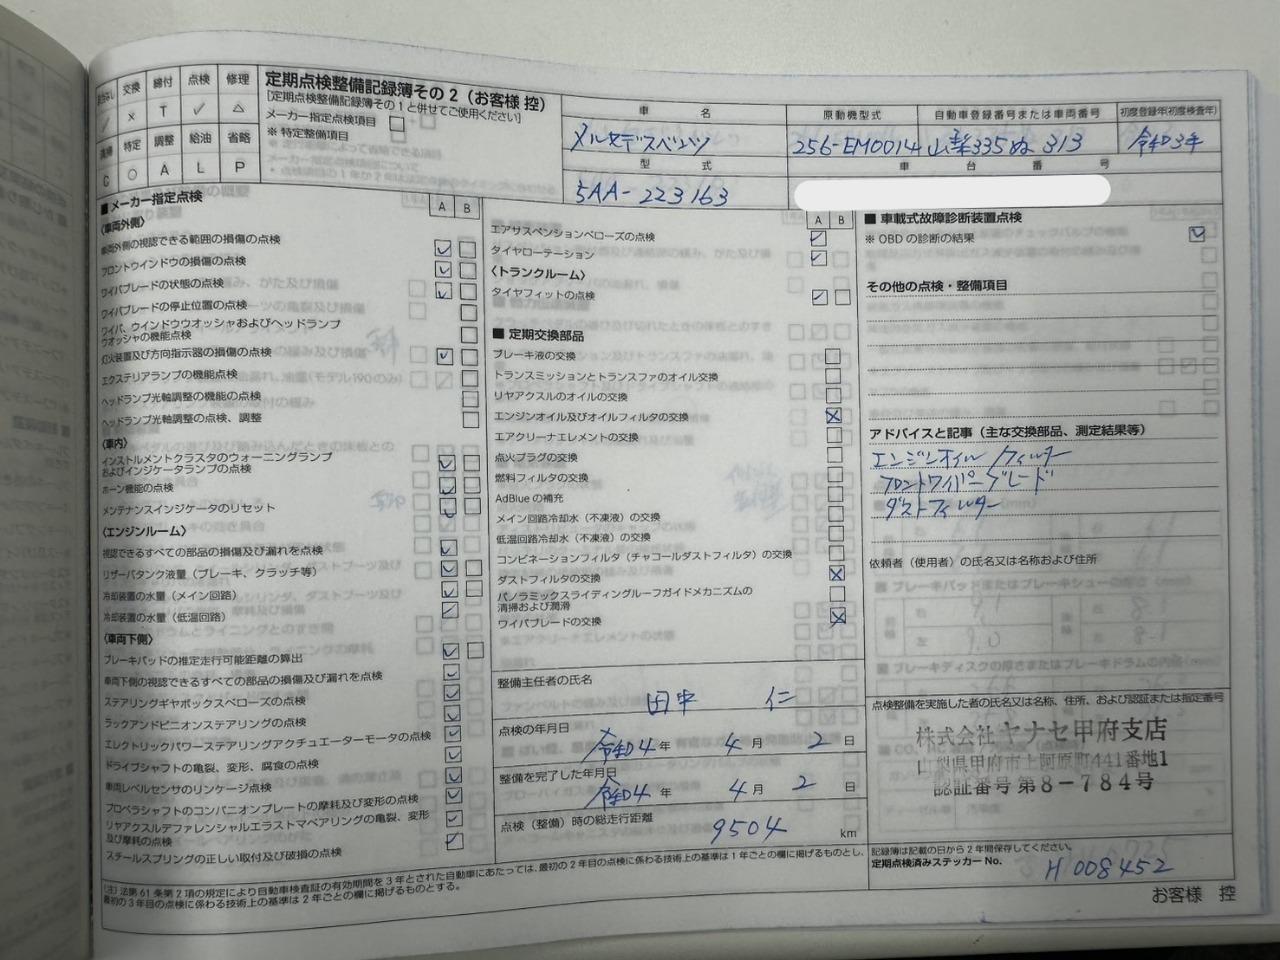 交換 締付 点検 修理
× T ✓ △
調整 給油 省略
○ A L P
定期点検整備記録簿その2（お客様 控）
[定期点検整備記録簿その1と併せてご使用ください]
メーカー指定点検項目 □
※ 特定整備項目
車 名
メルセデスベンツ
原動機型式
256-EM0014
自動車登録番号または車両番号
山梨335ぬ313
初度登録年(初度検査年)
令和3年
型 式
5AA-223163
車 台 番 号
■ メーカー指定点検
A B
〈車両外側〉
車両外側の視認できる範囲の損傷の点検
フロントウインドウの損傷の点検
ワイパブレードの状態の点検
ワイパブレードの停止位置の点検
ワイパ、ウインドウウオッシャおよびヘッドランプ
ウオッシャの機能点検
灯火装置及び方向指示器の損傷の点検
エクステリアランプの機能点検
ヘッドランプ光軸調整の機能の点検
ヘッドランプ光軸調整の点検、調整
〈車内〉
インストルメントクラスタのウォーニングランプ
およびインジケータランプの点検
ホーン機能の点検
メンテナンスインジケータのリセット
〈エンジンルーム〉
視認できるすべての部品の損傷及び漏れを点検
リザーバタンク液量（ブレーキ、クラッチ等）
冷却装置の水量（メイン回路）
冷却装置の水量（低温回路）
〈車両下側〉
ブレーキパッドの推定走行可能距離の算出
車両下側の視認できるすべての部品の損傷及び漏れを点検
ステアリングギヤボックスベローズの点検
ラックアンドピニオンステアリングの点検
エレクトリックパワーステアリングアクチュエーターモータの点検
ドライブシャフトの亀裂、変形、腐食の点検
車両レベルセンサのリンケージ点検
プロペラシャフトのコンパニオンプレートの摩耗及び変形の点検
リヤアクスルデファレンシャルエラストマベアリングの亀裂、変形
及び摩耗の点検
スチールスプリングの正しい取付及び破損の点検
A B
エアサスペンションベローズの点検
タイヤローテーション
〈トランクルーム〉
タイヤフィットの点検
■ 定期交換部品
ブレーキ液の交換
トランスミッションとトランスファのオイル交換
リヤアクスルのオイルの交換
エンジンオイル及びオイルフィルタの交換
エアクリーナエレメントの交換
点火プラグの交換
燃料フィルタの交換
AdBlue の補充
メイン回路冷却水（不凍液）の交換
低温回路冷却水（不凍液）の交換
コンビネーションフィルタ（チャコールダストフィルタ）の交換
ダストフィルタの交換
パノラミックスライディングルーフガイドメカニズムの
清掃および潤滑
ワイパブレードの交換
整備主任者の氏名
田中 仁
点検の年月日
令和4 年 4 月 2 日
整備を完了した年月日
令和4 年 4 月 2 日
点検（整備）時の総走行距離
9504 km
■ 車載式故障診断装置点検
※ OBD の診断の結果
その他の点検・整備項目
アドバイスと記事（主な交換部品、測定結果等）
エンジンオイル/フィルター
フロントワイパーブレード
ダストフィルター
依頼者（使用者）の氏名又は名称および住所
点検整備を実施した者の氏名又は名称、住所、および認証または指定番号
株式会社 ヤナセ甲府支店
山梨県甲府市上阿原町441番地1
認証番号 第8-784号
記録簿は記載の日から2年間保存してください。
定期点検済みステッカー No.
H 008452
（注）法第61条第2項の規定により自動車検査証の有効期間を3年とされた自動車にあたっては、最初の2年目の点検に係わる技術上の基準は1年ごとの欄に掲げるものとし、
最初の3年目の点検に係わる技術上の基準は2年ごとの欄に掲げるものとする。
お客様 控